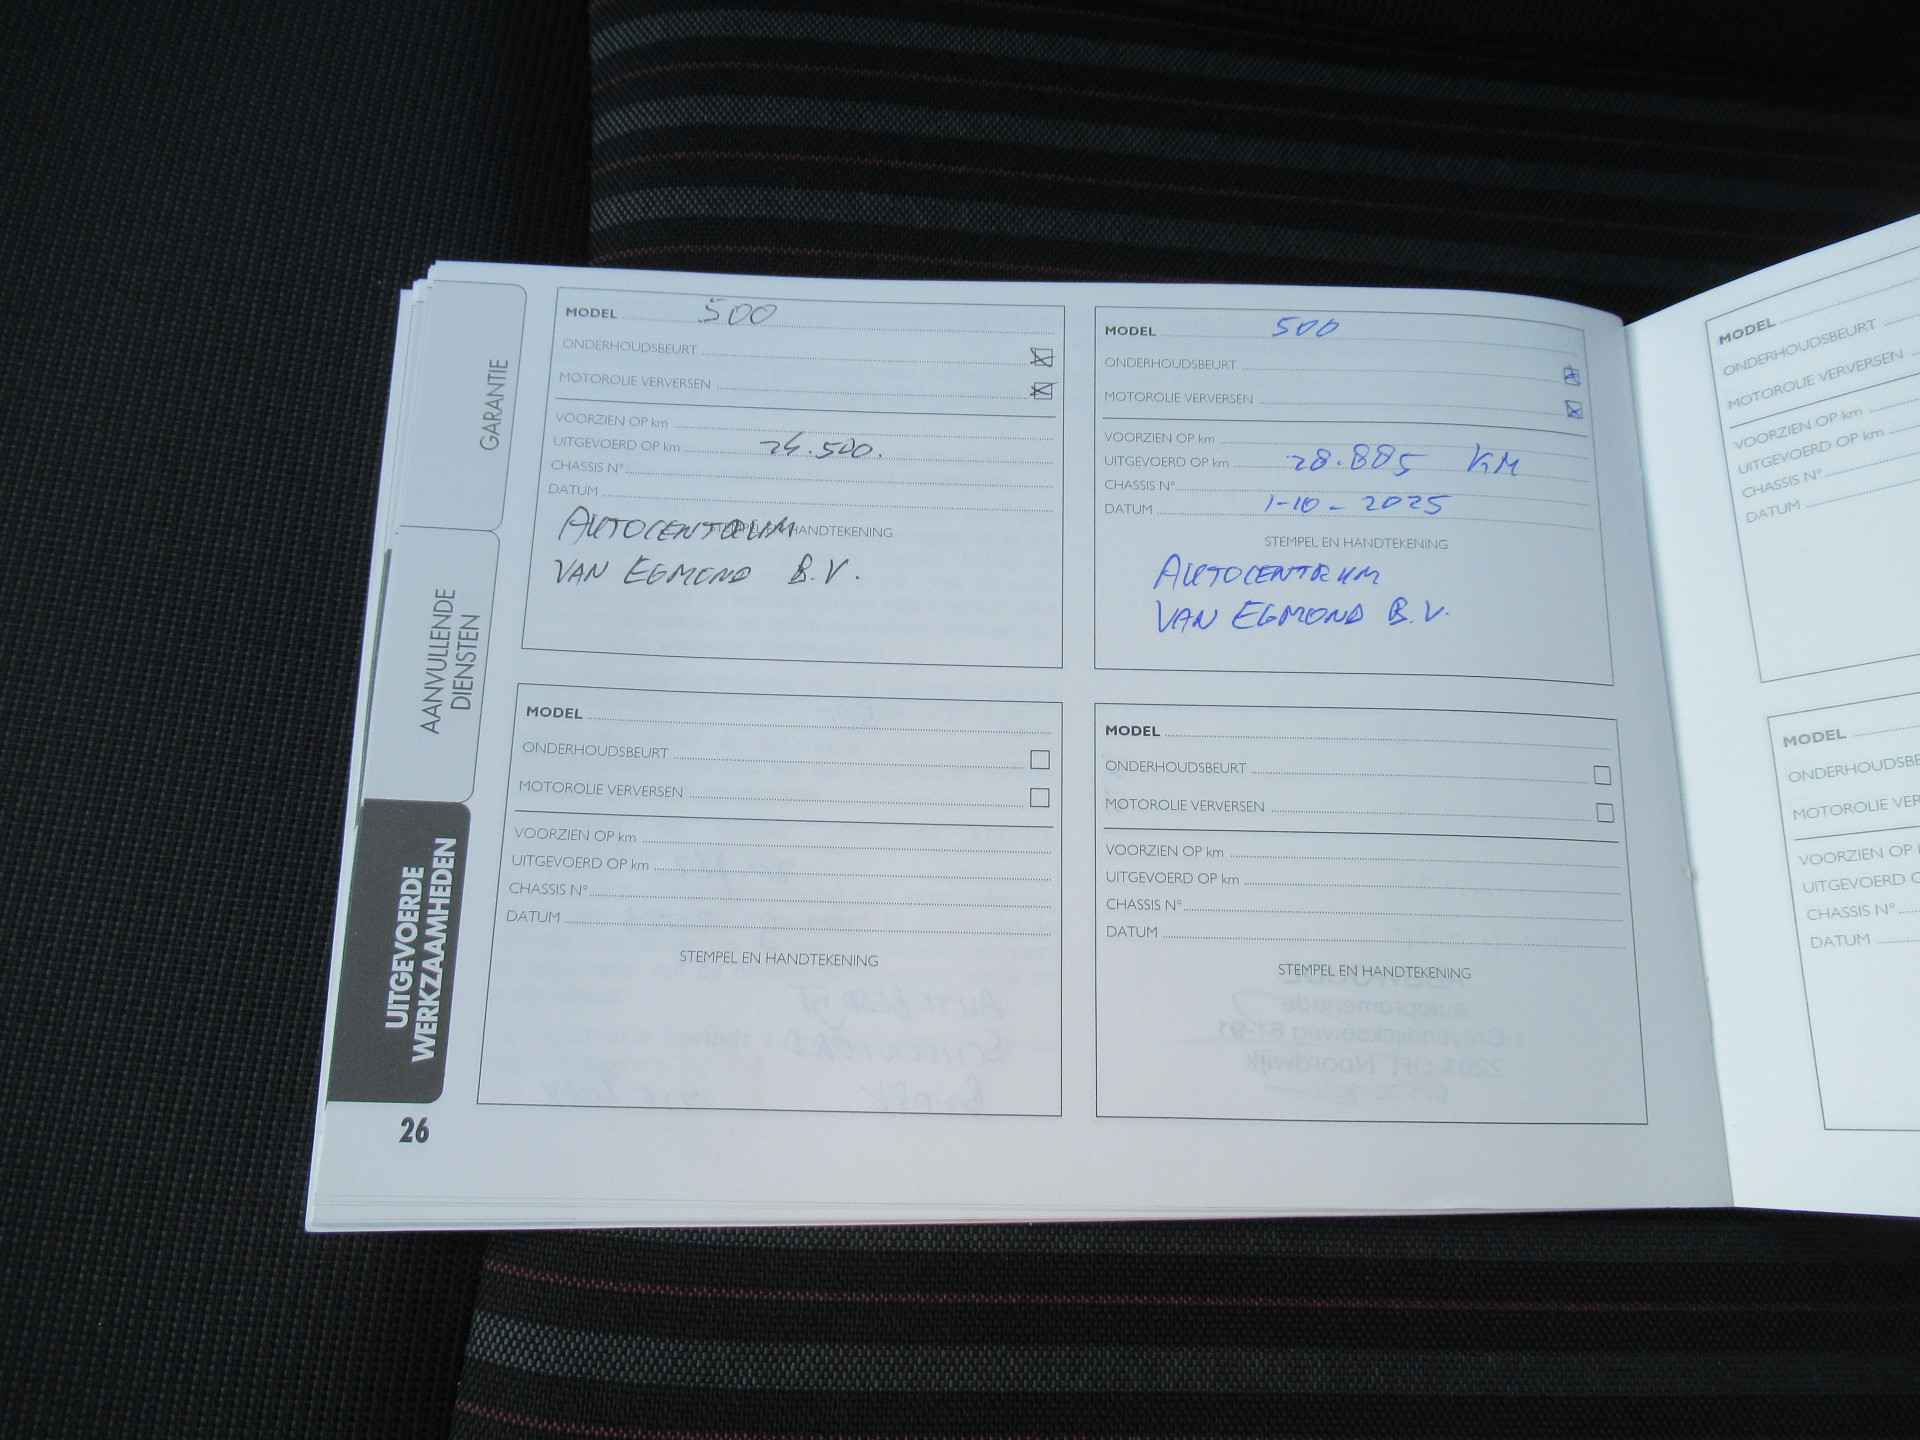 GARANTIE
AANVULLENDE
DIENSTEN
UITGEVOERDE
WERKZAAMHEDEN
26
MODEL 500
ONDERHOUDSBEURT
MOTOROLIE VERVERSEN
VOORZIEN OP km
UITGEVOERD OP km 24.500.
CHASSIS N°
DATUM
STEMPEL EN HANDTEKENING
AUTOCENTRUM
VAN EGMOND B.V.
MODEL 500
ONDERHOUDSBEURT
MOTOROLIE VERVERSEN
VOORZIEN OP km
UITGEVOERD OP km 28.885 KM
CHASSIS N°
DATUM 1-10-2025
STEMPEL EN HANDTEKENING
AUTOCENTRUM
VAN EGMOND B.V.
MODEL
ONDERHOUDSBEURT
MOTOROLIE VERVERSEN
VOORZIEN OP km
UITGEVOERD OP km
CHASSIS N°
DATUM
STEMPEL EN HANDTEKENING
MODEL
ONDERHOUDSBEURT
MOTOROLIE VERVERSEN
VOORZIEN OP km
UITGEVOERD OP km
CHASSIS N°
DATUM
STEMPEL EN HANDTEKENING
MODEL
ONDERHOUDSBEURT
MOTOROLIE VERVERSEN
VOORZIEN OP km
UITGEVOERD OP km
CHASSIS N°
DATUM
MODEL
ONDERHOUDSBE
MOTOROLIE VER
VOORZIEN OP
UITGEVOERD O
CHASSIS N°
DATUM